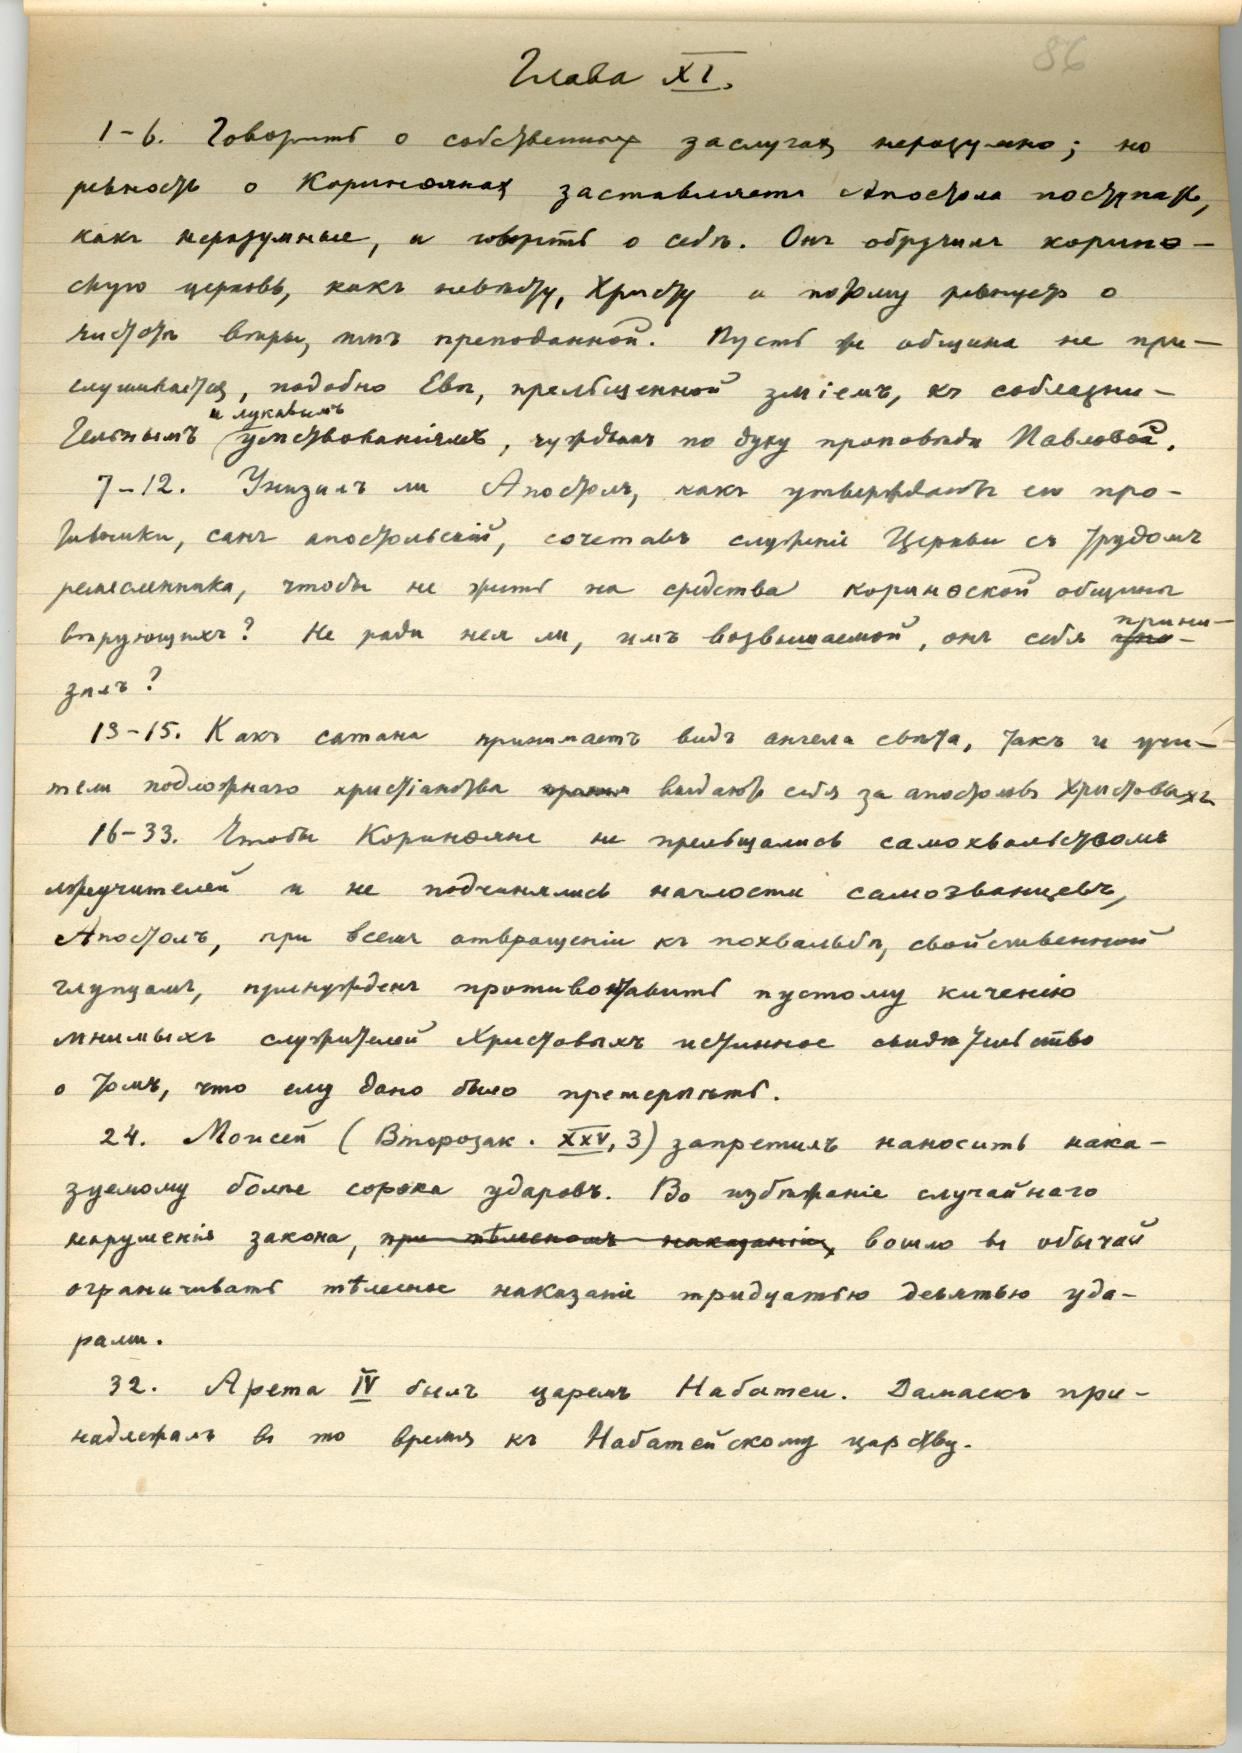 86
Глава XI.
1-6. Говорить о собственныхъ заслугахъ неразумно; но
ревность о Коринѳянахъ заставляетъ Апостола поступать,
какъ неразумные, и говорить о себѣ. Онъ обручилъ корино-
скую церковь, какъ невѣсту, Христу и потому ревнуетъ о
чистотѣ вѣры, имъ преподанной. Пусть же община не при-
слушивается, подобно Евѣ, прельщенной зміемъ, къ соблазни-
и лукавымъ
тельнымъ умствованіямъ, чуждымъ по духу проповѣди Павловой.
7-12. Унизилъ ли Апостолъ, какъ утверждаютъ его про-
тивники, санъ апостольскій, сочетавъ служеніе Церкви съ трудомъ
ремесленника, чтобы не жить на средства коринѳской общины
вѣрующихъ? Не ради нея ли, имъ возвышаемой, онъ себя прини-
зилъ?
13-15. Какъ сатана принимаетъ видъ ангела свѣта, такъ и учи-
тели подложнаго христіанства выдаютъ себя за апостоловъ Христовыхъ
16-33. Чтобы Коринѳяне не прельщались самохвальствомъ
лжеучителей и не подчинялись наглости самозванцевъ,
Апостолъ, при всемъ отвращеніи къ похвальбѣ, свойственной
глупцамъ, принужденъ противоставить пустому киченію
мнимыхъ служителей Христовыхъ истинное свидѣтельство
о томъ, что ему дано было претерпѣть.
24. Моисей (Второзак. XXV, 3) запретилъ наносить нака-
зуемому болѣе сорока ударовъ. Во избѣжаніе случайнаго
нарушенія закона, при тѣлесномъ наказаніи, вошло въ обычай
ограничивать тѣлесное наказаніе тридцатью девятью уда-
рами.
32. Арета IV былъ царемъ Набатеи. Дамаскъ при-
надлежалъ въ то время къ Набатейскому царству.